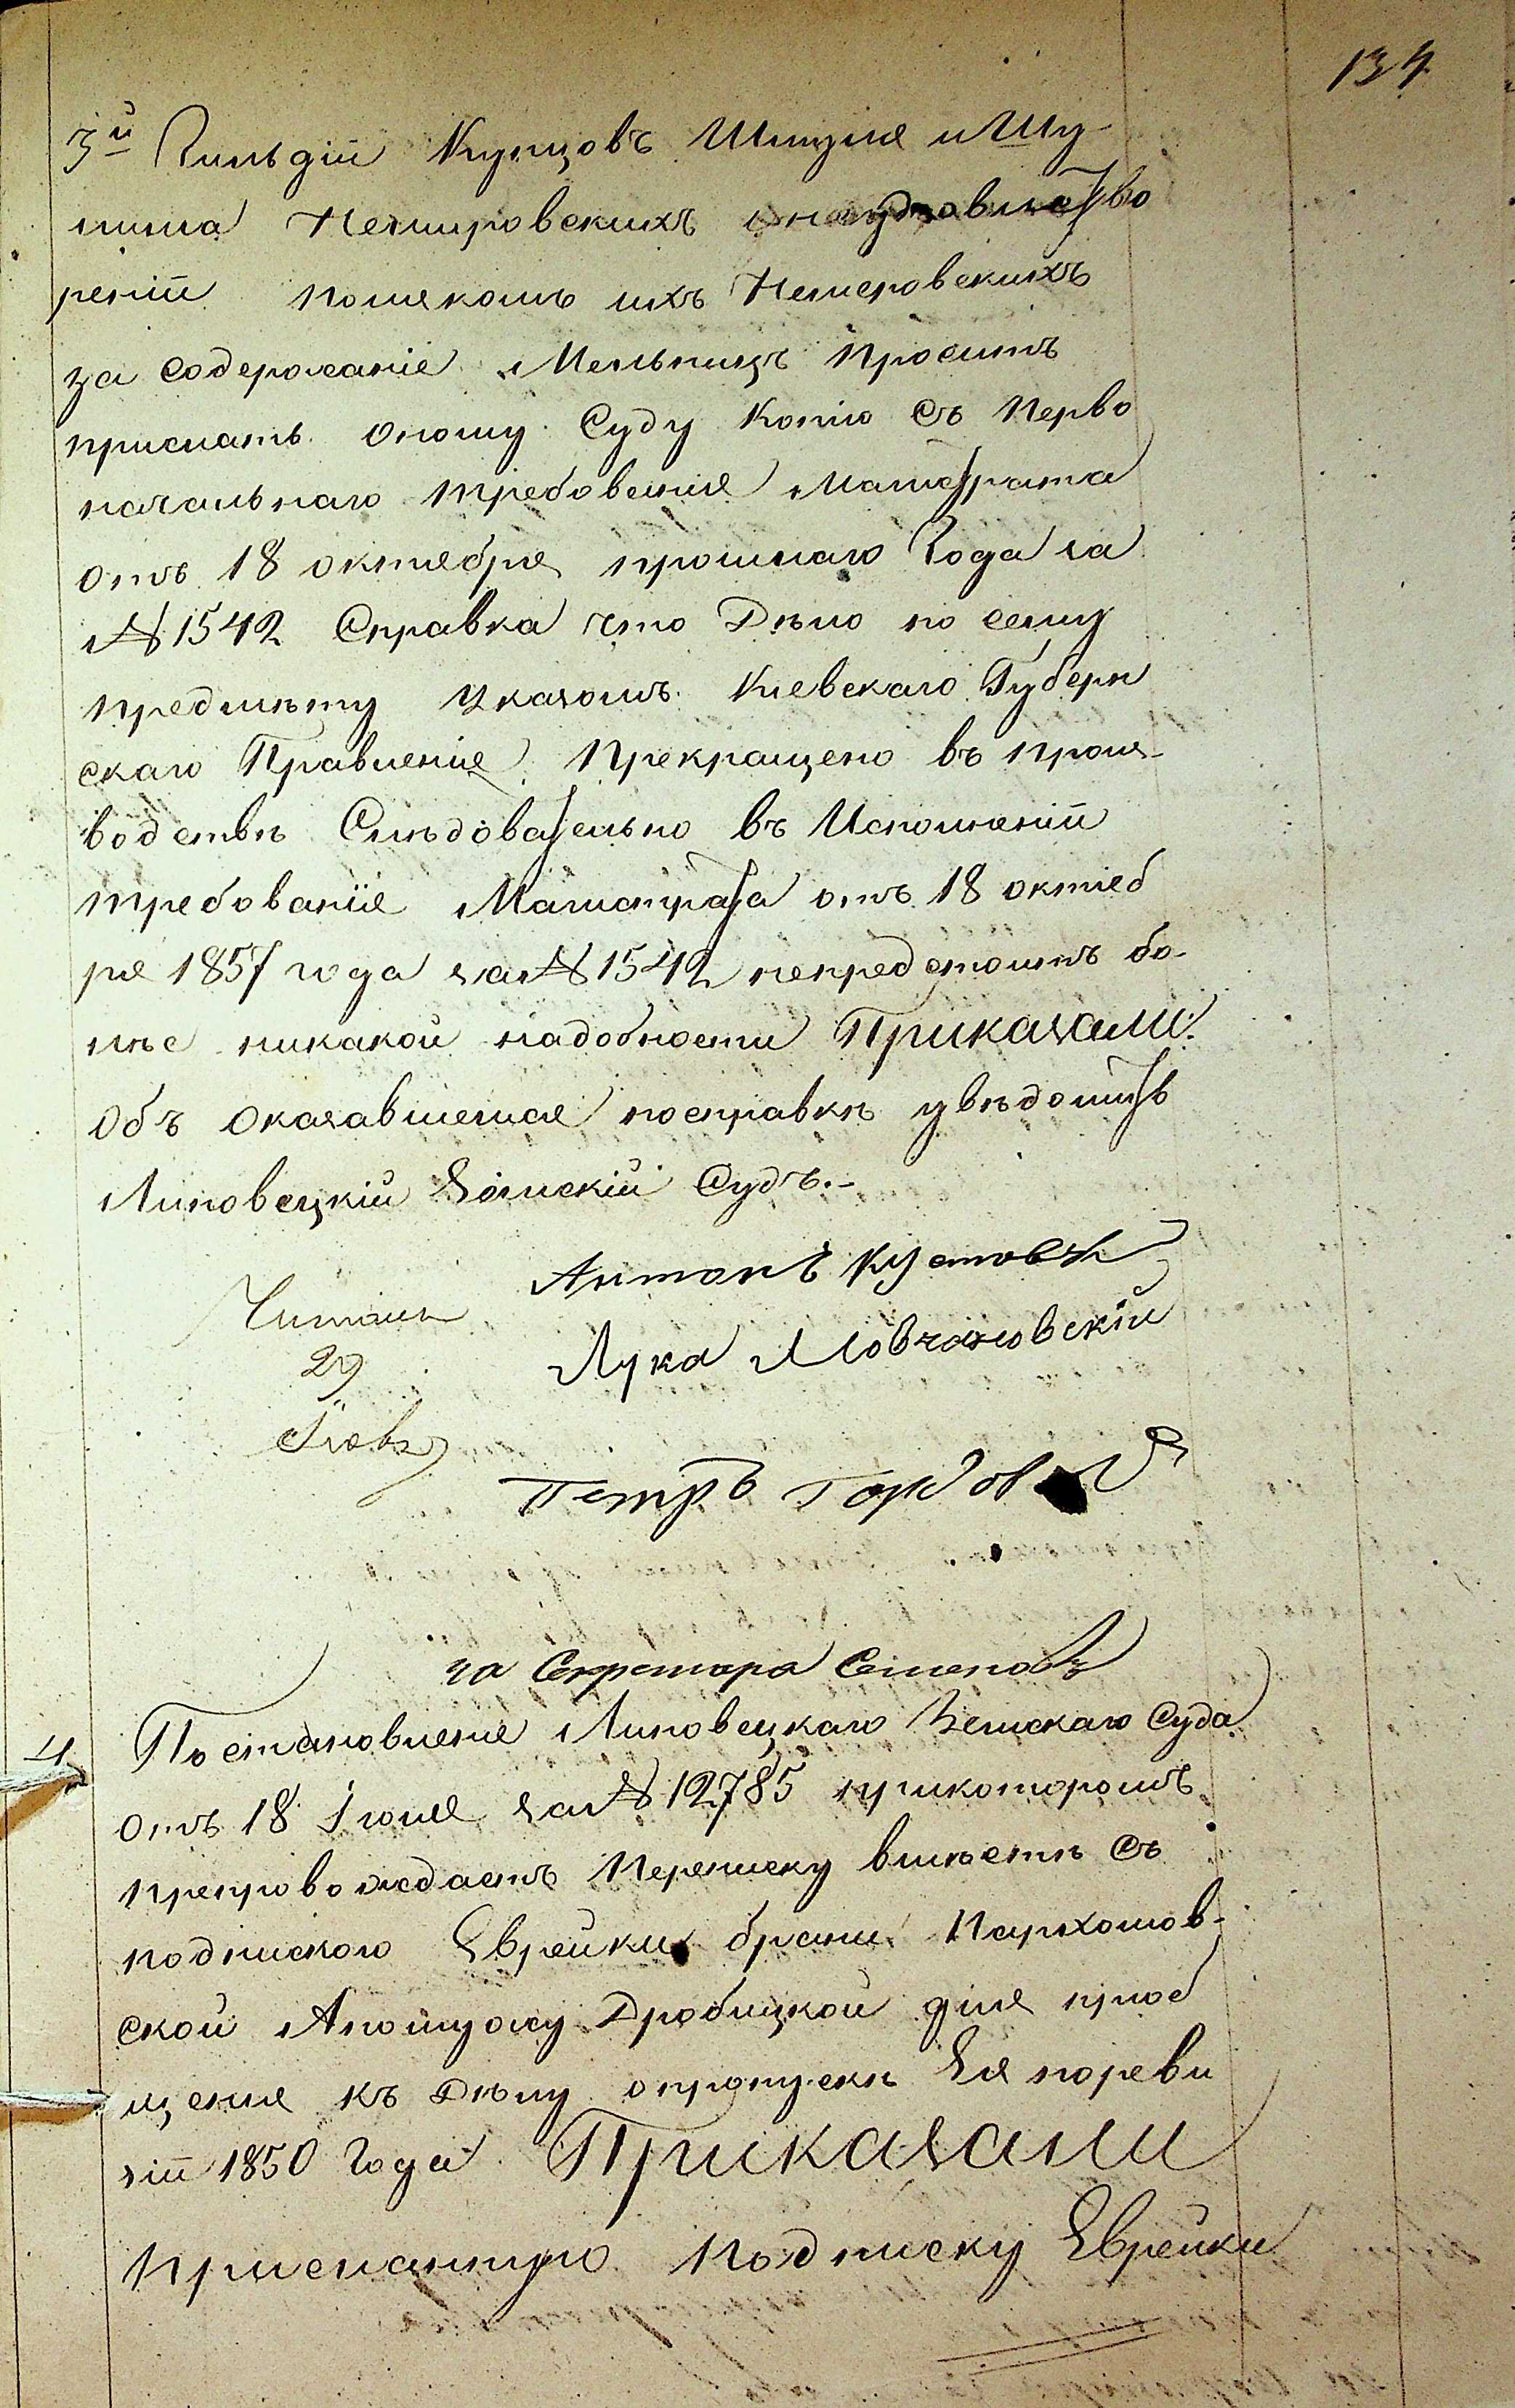 134
3й Гильдіи Купцовъ Шмуля и Шу
лима Немировскихъ о неудовлетво
реніи помекомъ ихъ Немеровскихъ
за содержаніе Мельницъ проситъ
прислать оному Суду Копію Съ Перво
начальнаго требованія Магистрата
отъ 18 октебря прошлаго Года за
№ 1542 Справка что Дѣло по сему
предмѣту Указомъ Кіевскаго Губерн
скаго Правленія Прекращено въ произ-
водствѣ Слѣдовательно въ Исполненіи
требованіе Магистрата отъ 18 октяб
ря 1857 года за № 1542 непредстоитъ бо-
лѣе никакой надобности Приказали:
Объ оказавшемся посправкѣ увѣдомить
Липовецкій Земскій Судъ.-
Антонъ
Читалъ
29
Лука Мовчановскій
Петръ
за Секретара Семеновъ
4 Постановленіе Липовецкаго Земскаго Суда
отъ 18 Іюня за № 12785 прикоторомъ
препровождаетъ Переписку вмѣстѣ Съ
подпискою Еврейки брани Пархомов-
ской Апомужу Дробицкой для пріоб
щенія къ Дѣлу опропускѣ Ея пореви
зіи 1850 Года Приказали
Присланную Подписку Еврейки